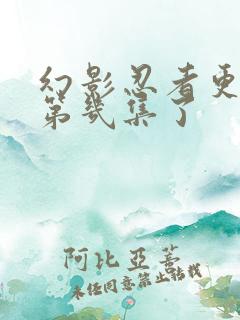 幻影忍者更
第几集了
阿比亚蒂
未经同意禁止转载